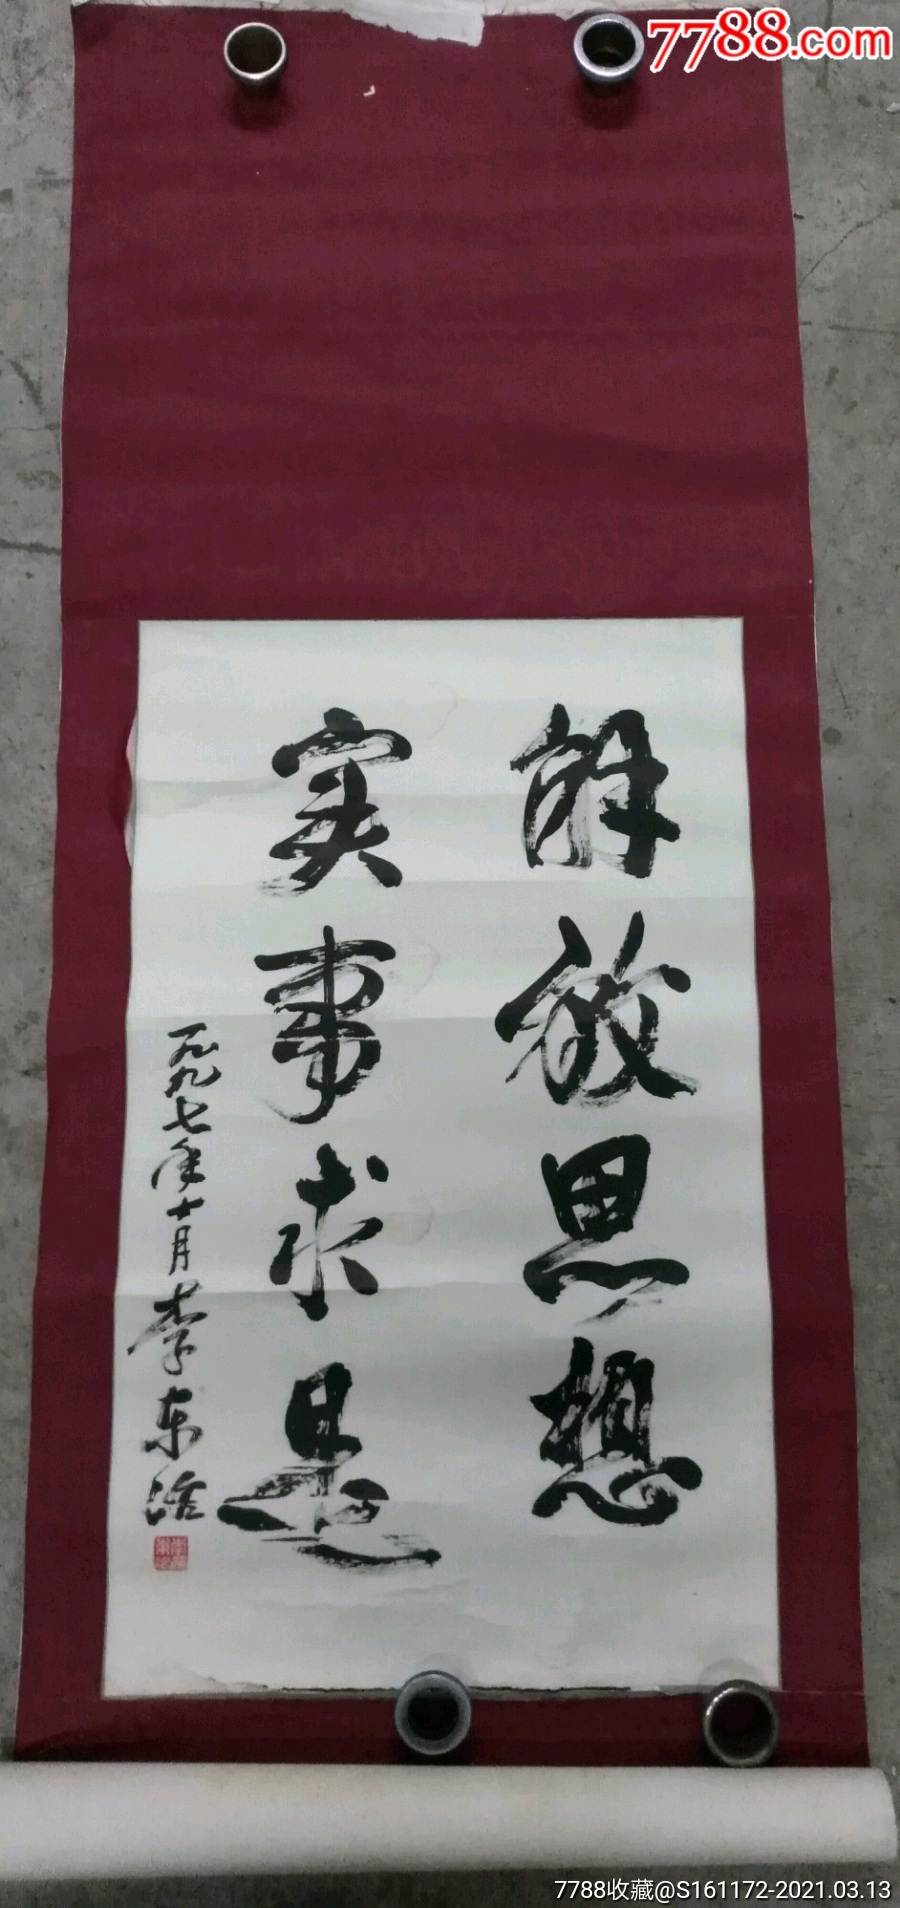 7788.com
解放思想
实事求是
一九九七年十月李东冶
7788收藏@S161172-2021.03.13